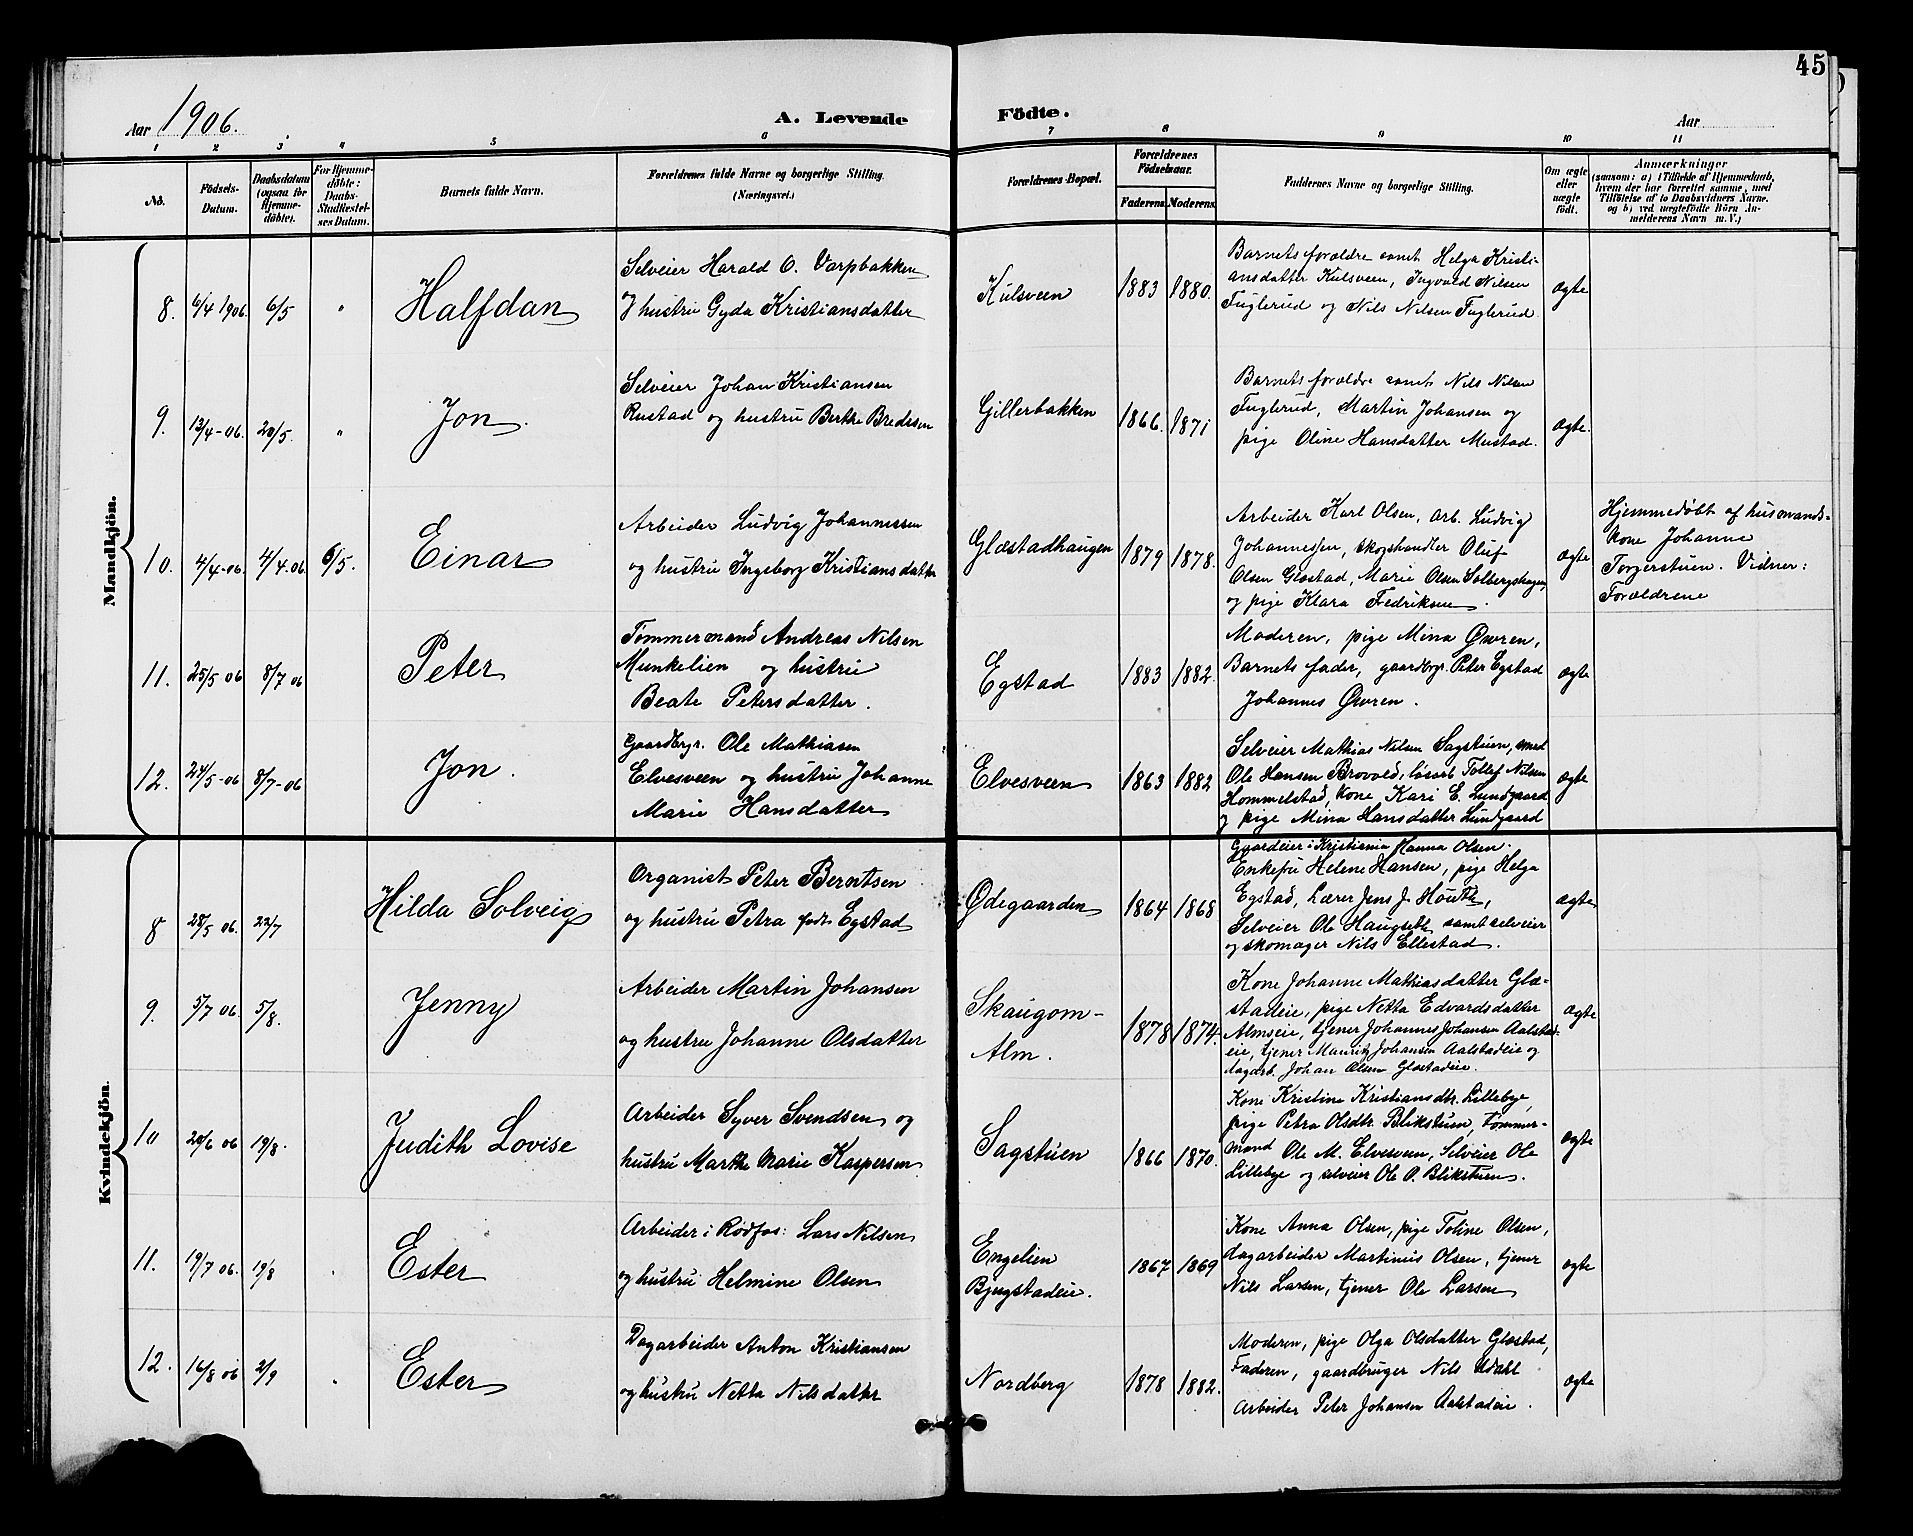 45
Aar 1906.
A. Levende Födte.
Aar
1 2 3 4 5 6 7 8 9 10 11
No.
Födsels-Datum.
Daabsdatum (ogsaa for Hjemme-döbte).
For Hjemme-döbte: Daabs-Stadfæstel-ses Datum.
Barnets fulde Navn.
Forældrenes fulde Navne og borgerlige Stilling. (Næringsvei.)
Forældrenes Bopæl.
Forældrenes Födselsaar.
Faderens. Moderens.
Faddernes Navne og borgerlige Stilling.
Om ægte eller uægte født.
Anmærkninger
(saasom: a) i Tilfælde af Hjemmedaab, hvem der har forrettet samme, med Tilföielse af to Daabsvidners Navne. og b) ved uægtefödte Börn An-melderens Navn m. V.)
Mandkjön.
8. 6/4 1906. 6/5 " Halfdan
Selveier Harald O. Varpbakken
og hustru Gyda Kristiansdatter
Kulsveen 1883 1880.
Barnets forældre samt Helga Kristi-
ansdatter Kulsveen, Ingvald Nilsen
Fuglerud og Nils Nilsen Fuglerud.
ægte
9. 13/4-06. 20/5. " Jon.
Selveier Johan Kristiansen
Rustad og hustru Berthe Bredesen
Gillerbakken 1866. 1871
Barnets forældre samt Nils Nilsen
Fuglerud, Martin Johansen og
pige Oline Hansdatter Mustad.
ægte.
10. 4/4-06. 4/4.06. 6/5. Einar
Arbeider Ludvig Johannessen
og hustru Ingeborg Kristiansdatter
Glæstadhaugen 1879 1878.
Arbeider Karl Olsen, arb. Ludvig
Johannessen, skogshandler Oluf
Olsen Glæstad, Marie Olsen Solbergshagen,
og pige Klara Fredriksen.
ægte
Hjemmedøbt af husmands-
kone Johanne
Torgerstuen. Vidner:
Forældrene
11. 25/5 06 8/7 06 Peter
Tømmermand Andreas Nilsen
Munkelien og hustru
Beate Petersdatter.
Egstad 1883 1882.
Moderen, pige Mina Øvren,
Barnets fader, gaardbrgr. Peter Egstad
Johannes Øvren.
ægte
12. 24/5-06 8/7-06 Jon.
Gaardbrgr. Ole Mathiasen
Elvesveen og hustru Johanne
Marie Hansdatter
Elvesveen 1863 1882
Selveier Mathias Nilsen Sagstuen, smed
Ole Hansen Brovold, løsarb Tollef Nilsen
Hommelstad, kone Kari E. Lundgaard
og pige Mina Hansdatter Lundgaard
ægte
Kvindekjön.
8 28/5 06. 22/7 Hilda Solveig
Organist Peter Berntsen
og hustru Petra født Egstad
Ødegaarden 1864 1868
Gaardeier i Kristiania Hanna Olsen.
Enkefru Helene Hansen, pige Helga
Egstad, Lærer Jens J. Houth,
Selveier Ole Haugseth samt selveier
og skomager Nils Ellestad.
ægte
9. 5/7 06. 5/8. Jenny
Arbeider Martin Johansen
og hustru Johanne Olsdatter
Skaugom-
Alm.
1878 1874.
Kone Johanne Mathiasdatter Glæ-
stadeie, pige Netta Edvardsdatter
Almseie, tjener Johannes Johansen Aalstad-
eie, tjener Mauritz Johansen Aalstadeie og
dagarb. Johan Olsen Glæstadeie.
ægte
10 20/6 06 19/8. Judith Lovise
Arbeider Syver Svendsen og
hustru Marthe Marie Kaspersen
Sagstuen 1866 1870.
Kone Kristine Kristiansdtr. Lillebye,
pige Petra Olsdtr. Blikstuen, tømmer-
mand Ole M. Elvesveen, Selveier Ole
Lillebye og selveier Ole P. Blikstuen.
ægte
11. 19/7 06. 19/8 . Ester
Arbeider i Rødfos: Lars Nilsen
og hustru Helmine Olsen
Engelien
Bjugstadeie.
1867 1869
Kone Anna Olsen, pige Toline Olsen,
dagarbeider Martinus Olsen, tjener
Nils Larsen, tjener Ole Larsen
ægte
12. 16/8 06 2/9 . Ester
Dagarbeider Anton Kristiansen
og hustru Netta Nilsdatter
Nordberg 1878 1882.
Moderen, pige Olga Olsdatter Glæstad,
Faderen, gaardbruger Nils Udahl
Arbeider Peter Johansen Aalstadeie.
ægte